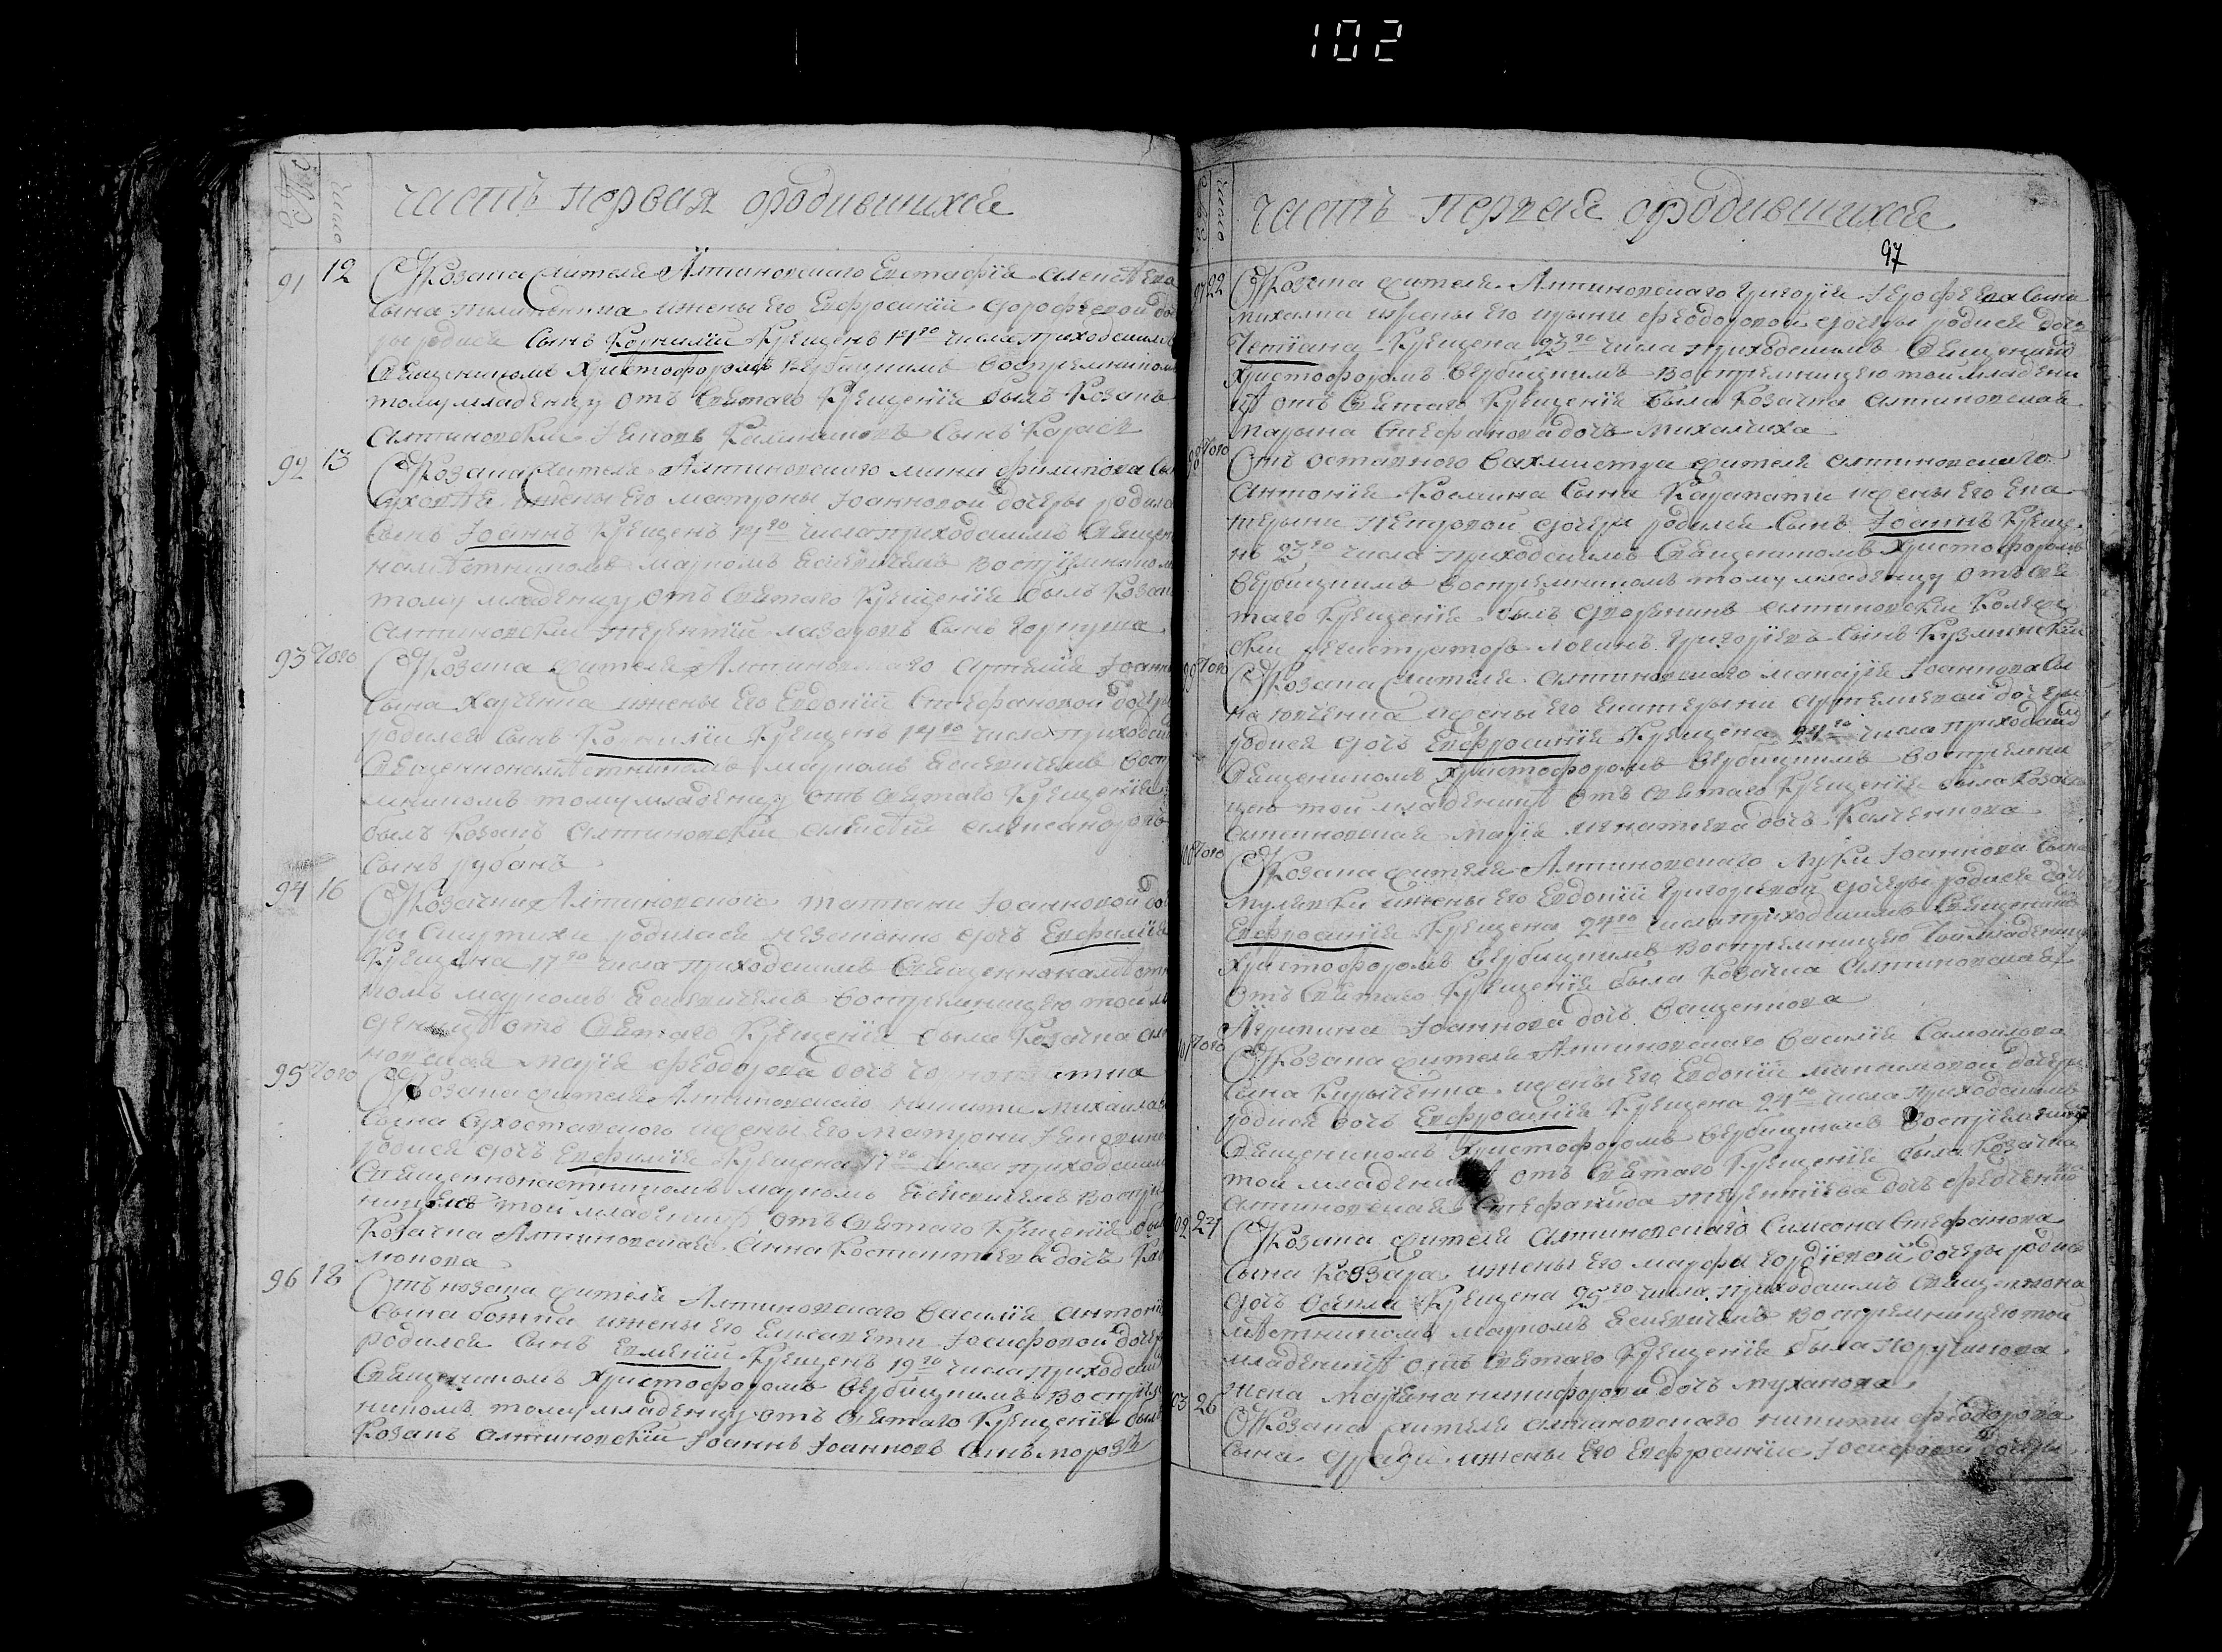 102
№ число
часть первая ородившихся
91 12 Укозака жителя Алтиновского Евстафия Алексѣева
сына пилипенка ижены его Евфросинии дорофѣевой доч
ры родися сынъ Корнилий Крещенъ 14го числа приходскимъ
Священикомъ Христофоромъ Вербицкимъ восприемникомъ
тому младенцу отъ Святаго Крещения былъ Козакъ
Алтиновский Калинниковъ сынъ
92 13 Укозака жителя Алтиновского мини филипова сы
ижены его матроны Иоанновой дочеры родился
сынъ Иоаннъ Крещенъ 14го числа приходскимъ Священ
намѣстникомъ маркомъ восприемником
тому младенцу отъ Святаго Крещения былъ Козакъ
Алтиновский терентий лазаровъ сынъ
93 того Укозака жителя Алтиновского Артемия Иоанн
сына Харченка ижены его Евдокии Стефановой дочеры
родился сынъ Корнилий Крещенъ 14го числа приходск
Священнонамѣстникомъ маркомъ восп
мникомъ тому младенцу отъ Святаго Крещения
былъ Козакъ Алтиновский Алексѣй Александровъ
сынъ рубанъ
94 16 Укозачки Алтиновской татяни Иоанновой до
ры родилася незаконно дочъ Евфимия
Крещена 17го числа приходскимъ Священнонамѣстн
комъ маркомъ восприемницею той мл
деницѣ отъ Святаго Крещения была Козачка ал
новская мария феодорова дочъ
95 того Укозака жителя Алтиновского никити михаилов
сына Сухоставского жены его матрони
родися дочъ Евфимия Крещена 17го числа приходским
Священнонамѣстникомъ маркомъ воспри
ницею той младеницѣ отъ Святаго Крещения был
Козачка Алтиновская Анна Костантиева дочъ
монова
96 18 Отъ козака жителя Алтиновского василия Антоние
сына ботка ижены его Елисавети Иосифовой дочеры
родился сынъ Крещенъ 19го числа приходским
Священикомъ Христофоромъ Вербицкимъ восприем
никомъ тому младенцу отъ Святаго Крещения былъ
Козакъ Алтиновский Иоаннъ Иоанновъ сынъ морозъ
№ число
часть первая ородившихся
97
97 22 Укозака жителя Алтиновского григория Иерофѣева сына
михалка ижены его ирыни феодоровой дочеры родися дочъ
Татиана Крещена 23го числа приходскимъ Священикомъ
Христофоромъ Вербицкимъ восприемницею той младени
цѣ отъ Святаго Крещения была Козачка Алтиновская
марына Стефанова дочъ михалчиха
98 того Отъ отставного вахмистра жителя Алтиновского
Антония Космина сына жены его Ека
терыни петровой дочеры родился сынъ Иоаннъ Креще
нъ 23го числа приходскимъ Священикомъ Христофоромъ
Вербицкимъ восприемникомъ тому младенцу отъ Свя
таго Крещения былъ дворянинъ Алтиновский Колеж
ский регистраторъ логинъ григориевъ сынъ Кузминский
99 того Укозака жителя Алтиновского макария Иоаннова сы
на юрченка жены его Екатерыни Артемиевой дочеры
родися дочъ Евфросиния Крещена 24го числа приходским
Священикомъ Христофоромъ Вербицкимъ восприемни
цею той младеницѣ отъ Святаго Крещения была Козачка
Алтиновская мария игнатиева дочъ Калченкова
100 того Укозака жителя Алтиновского луки Иоаннова сына
мулявки ижены его Евдокии григориевой дочеры родися дочъ
Евфросиния Крещена 24го числа приходскимъ Священикомъ
Христофоромъ Вербицкимъ восприемницею той младеницѣ
отъ Святаго Крещения была Козачка Алтиновская
Агрипина Иоаннова дочъ ващенкова
101 того Укозака жителя Алтиновского василия Самоилова
сына Кириченка жены его Евдокии максимовой дочеры
родися дочъ Евфросиния Крещена 24го числа приходскимъ
Священикомъ Христофоромъ Вербицкимъ восприемницею
той младеницѣ отъ Святаго Крещения была Козачка
Алтиновская Стефанида терентиева дочъ федченко
102 24 Укозака жителя Алтиновского Симеона Стефанова
сына Кобзара ижены его марфы гордиевой дочеры родися
дочъ Фекла Крещена 25го числа приходскимъ Священнона
мѣстникомъ маркомъ восприемницею той
младеницѣ отъ Святаго Крещения была поручикова
жена марина никифорова дочъ муханова
103 26 Укозака жителя Алтиновского никити феодорова
сына ижены его Евфросинии Иосифовой дочеры